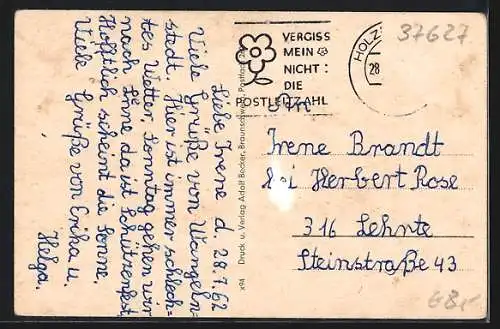 Liebe Irene d. 24.7.62
Viele Grüße von Wangeln-
stedt. Hier ist immer schlech-
tes Wetter, Sonntag gehen wir
nach Linne da ist Schützenfest,
Hoffentlich scheint die Sonne.
Viele Grüße von Erika u.
Helga.
x94 Druck u. Verlag Adolf Becker, Braunschweig, Postfach
VERGISS
MEIN
NICHT:
DIE
POSTLEITZAHL
HOLZ
28
37627
Irene Brandt
bei Herbert Rose
316 Lehrte
Steinstraße 43